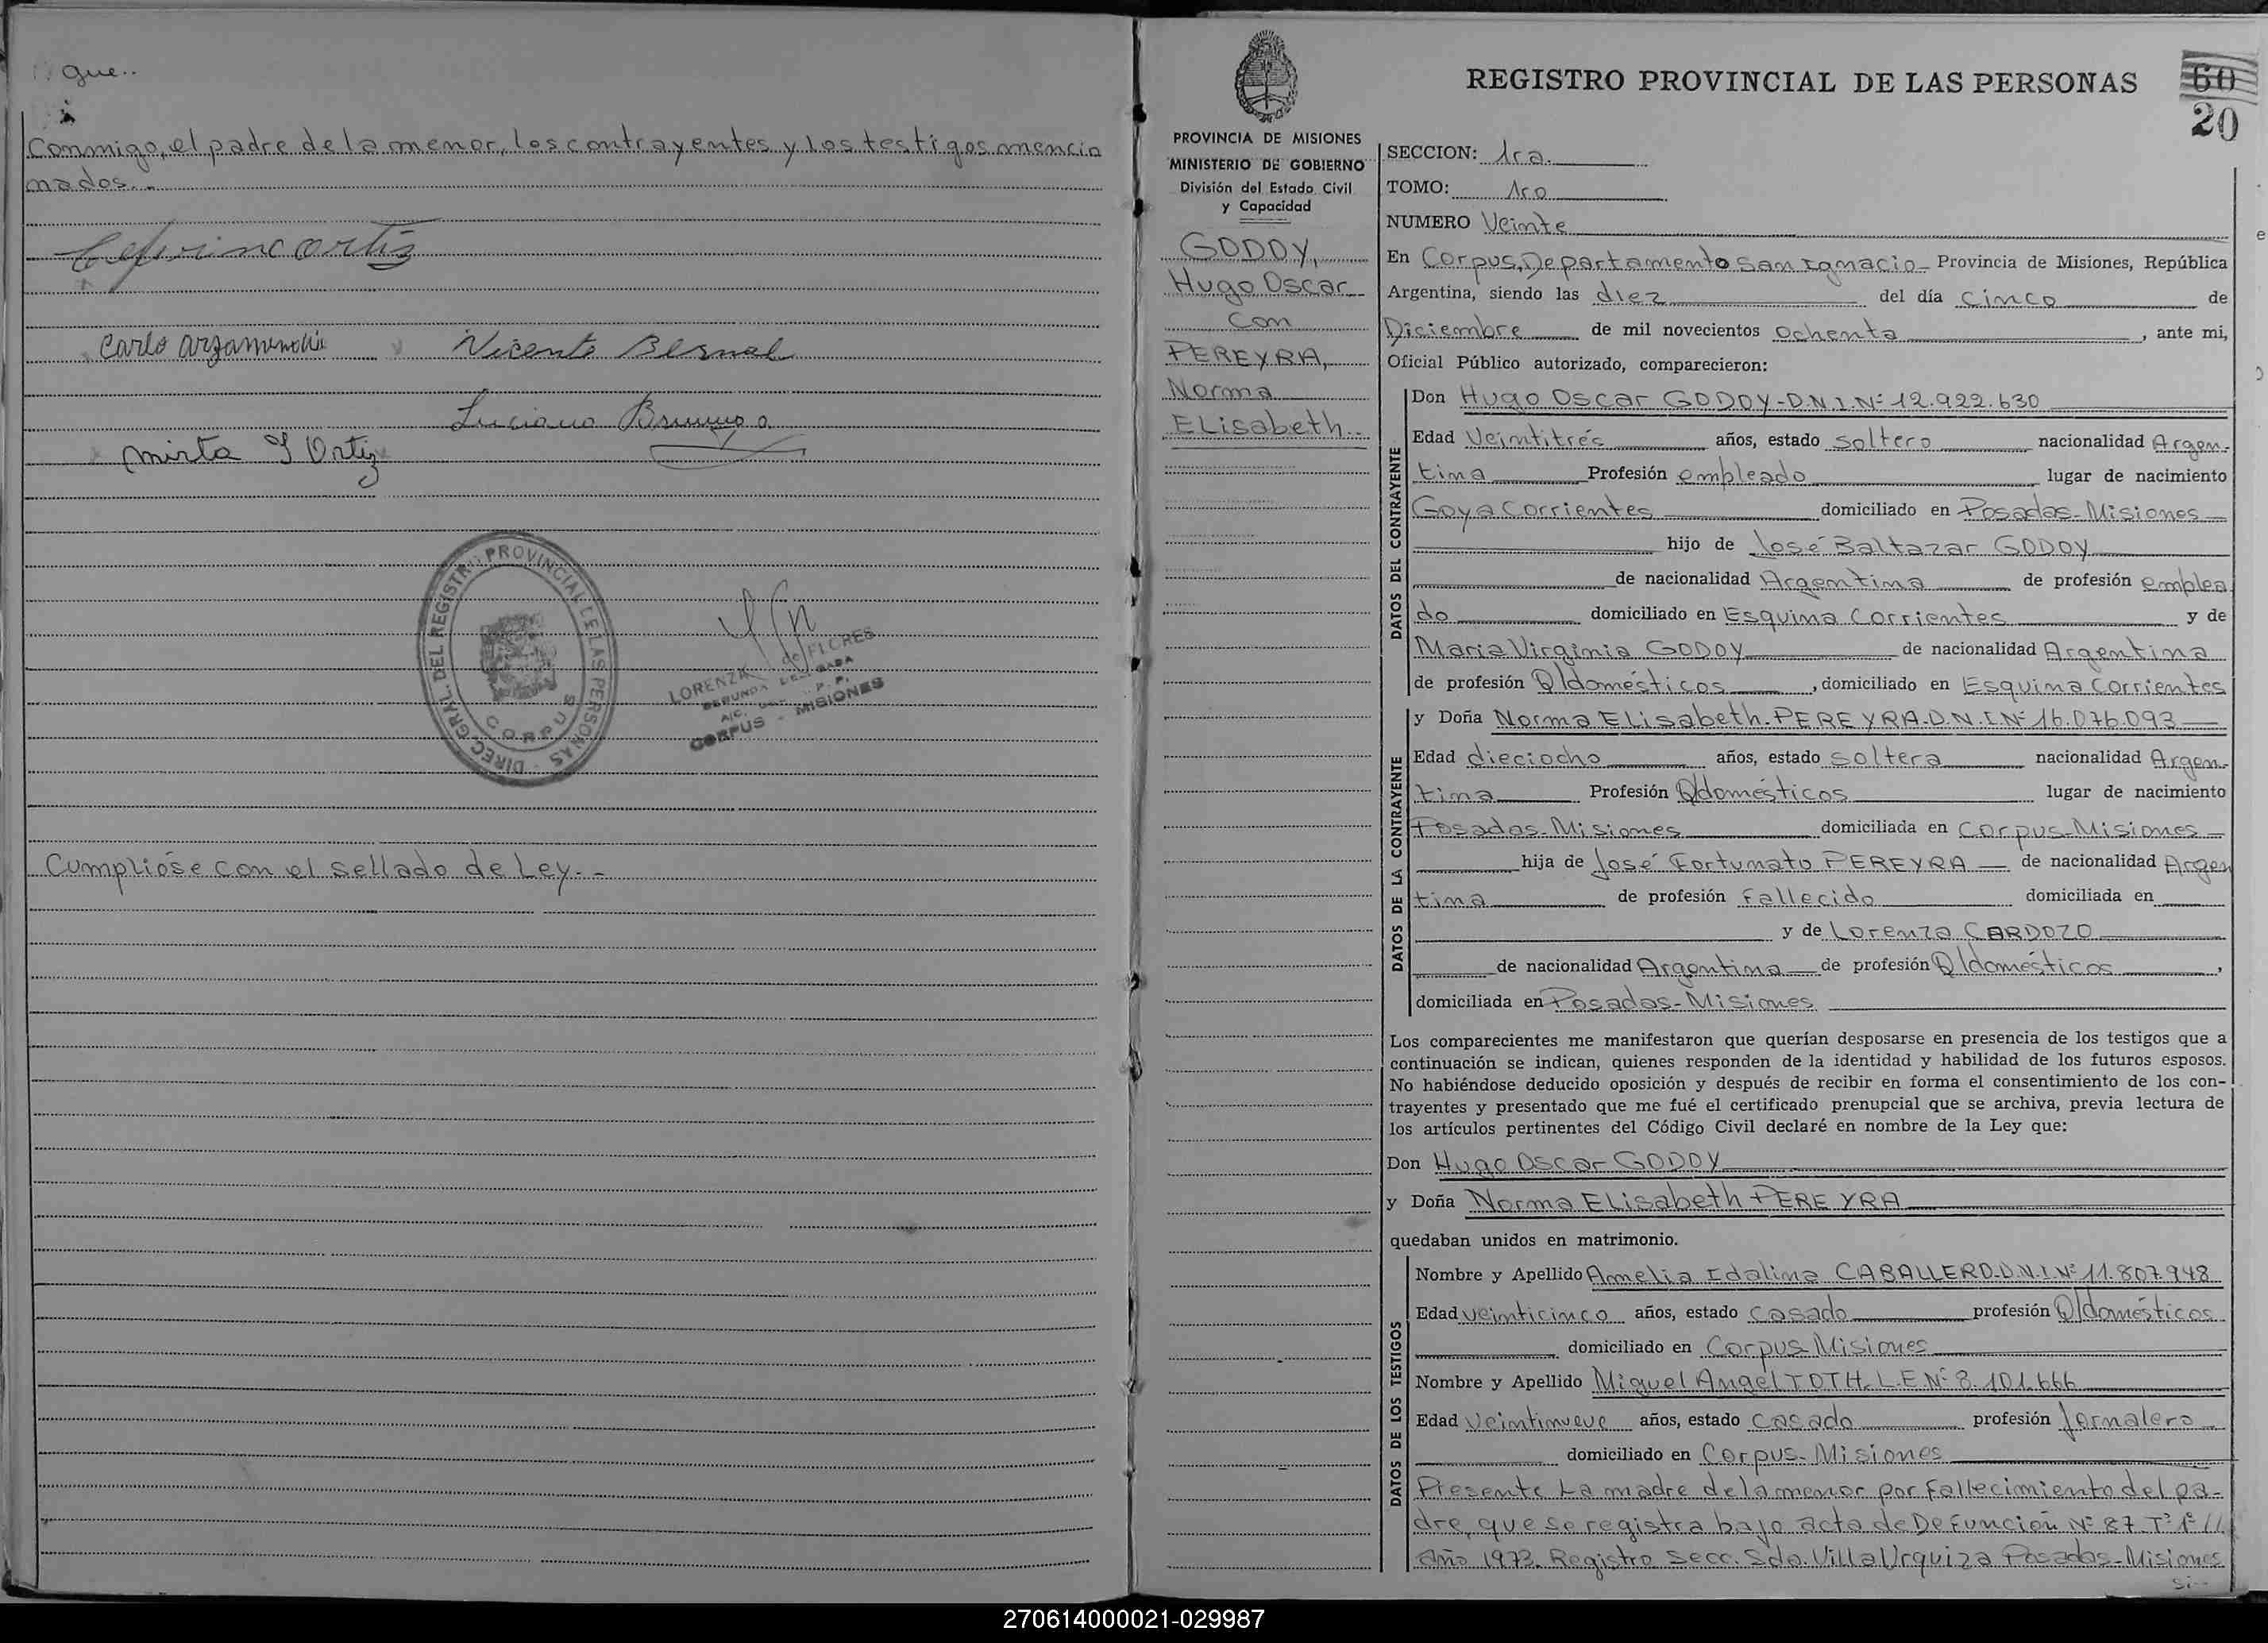 que..
Conmigo, el padre de la menor, los contrayentes y los testigos mencio
nados..
Ceferino Ortiz
Carlo Arzamendia Vicente Bernal
Luciano
Mirta I Ortiz
DIREC. GRAL. DEL REGISTRO PROVINCIAL DE LAS PERSONAS
CORPUS
LORENZA de FLORES
CORPUS - MISIONES
Cumplióse con el sellado de Ley.-
REGISTRO PROVINCIAL DE LAS PERSONAS
60
20
PROVINCIA DE MISIONES
MINISTERIO DE GOBIERNO
División del Estado Civil
y Capacidad
GODOY,
Hugo Oscar
con
PEREYRA,
Norma
ELisabeth.-
SECCION: 1ra.
TOMO: 1ro
NUMERO Veinte
En Corpus, Departamento San Ignacio Provincia de Misiones, República
Argentina, siendo las diez del día cinco de
Diciembre de mil novecientos ochenta, ante mi,
Oficial Público autorizado, comparecieron:
DATOS DEL CONTRAYENTE
Don Hugo Oscar GODOY-D.N.I.Nº 12.922.630
Edad Veintitrés años, estado soltero nacionalidad Argen-
tina Profesión empleado lugar de nacimiento
Goya Corrientes domiciliado en Posadas-Misiones
hijo de José Baltazar GODOY
de nacionalidad Argentina de profesión emplea
do domiciliado en Esquina Corrientes y de
Maria Virginia GODOY de nacionalidad Argentina
de profesión Q/domésticos, domiciliado en Esquina Corrientes
DATOS DE LA CONTRAYENTE
y Doña Norma ELisabeth PEREYRA-D.N.I.Nº 16.076.093
Edad dieciocho años, estado soltera nacionalidad Argen-
tina Profesión Q/domésticos lugar de nacimiento
Posadas-Misiones domiciliada en Corpus-Misiones
hija de José Fortunato PEREYRA de nacionalidad Argen
tina de profesión Fallecido domiciliada en
y de Lorenza CARDOZO
de nacionalidad Argentina de profesión Q/domésticos,
domiciliada en Posadas-Misiones
Los comparecientes me manifestaron que querían desposarse en presencia de los testigos que a
continuación se indican, quienes responden de la identidad y habilidad de los futuros esposos.
No habiéndose deducido oposición y después de recibir en forma el consentimiento de los con-
trayentes y presentado que me fué el certificado prenupcial que se archiva, previa lectura de
los artículos pertinentes del Código Civil declaré en nombre de la Ley que:
Don Hugo Oscar GODOY
y Doña Norma ELisabeth PEREYRA
quedaban unidos en matrimonio.
DATOS DE LOS TESTIGOS
Nombre y Apellido Amelia Idalina CABALLERO-D.N.I.Nº 11.807.948
Edad veinticinco años, estado casado profesión Q/domésticos
domiciliado en Corpus Misiones
Nombre y Apellido Miguel Angel TOTH-L.E.Nº 8.101.666
Edad Veintinueve años, estado casado profesión Jornalero
domiciliado en Corpus-Misiones
Presente La madre de la menor por Fallecimiento del pa-
dre, que se registra bajo acta de Defunción Nº 87 Tº 1º //
Año 1973. Registro Secc. 2da. Villa Urquiza Posadas-Misiones
si--
270614000021-029987